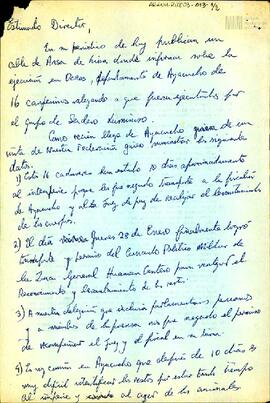 Estimado Director,
En su periodico de hoy publican un
cable de Ansa de Lima donde informan sobre la
ejecución en Ocros, departamento de Ayacucho de
16 campesinos alegando a que fueron ejecutados por
el grupo de Sendero Luminoso.
Como recién llego de Ayacucho de una
visita de Nuestra Federación quiero los siguientes
datos.
1) Estos 16 cadaveres han estado 10 días aproximadamente
al intemperie porque les fue negado transporte a la fiscalía
de Ayacucho y al Juez de realizar el levantamiento
de los cuerpos.
2) El dia Jueves 20 de Enero finalmente logró
transporte y permiso del Comando Politico Militar de
la Zona General Huaman Centeno para realizar el
Reconocimiento y levantamiento de los restos.
3) A nuestra delegación que incluía parlamentarios peruanos
y a miembros de la prensa nos fue negado el permiso
de acompañar el Juez y el fiscal en su
4) Es muy común en Ayacucho que después de 10 dias es
muy difícil identificar los restos por estar tanto tiempo
al intemperie y al de los animales